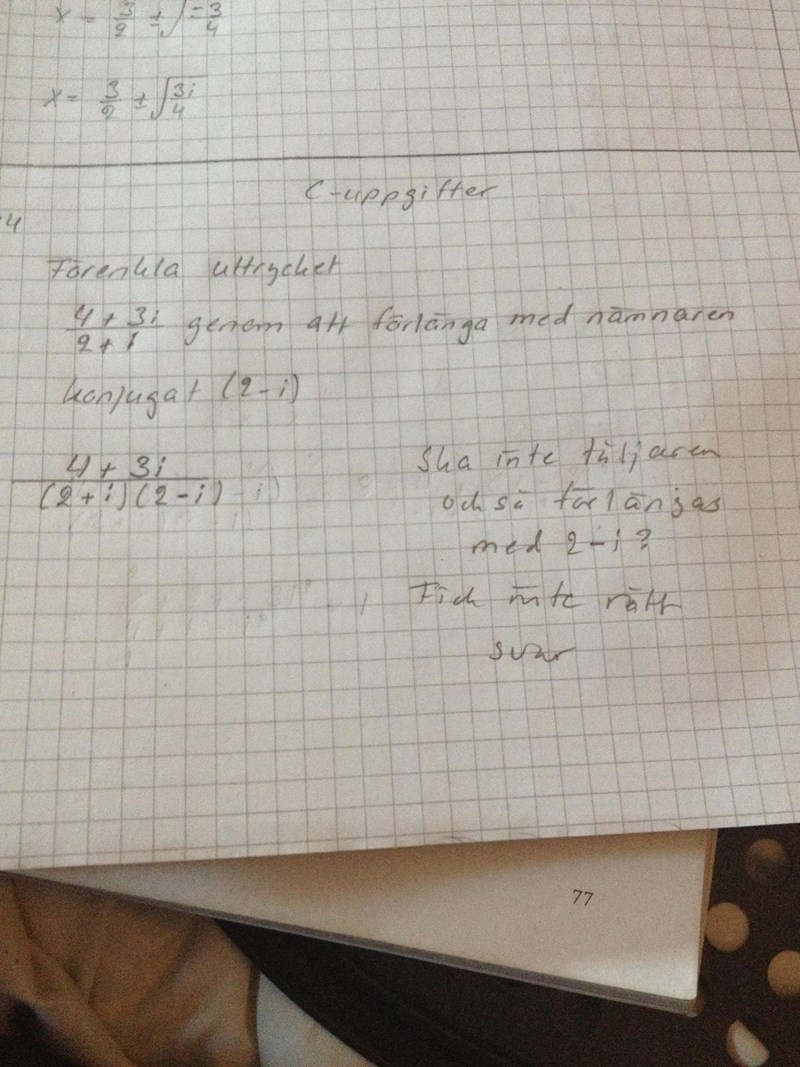 x = 3/2 ± √-3/4
x = 3/2 ± √3i/4
C-uppgifter
4
Förenkla uttrycket
4 + 3i / 2 + i genom att förlänga med nämnaren
konjugat (2-i)
4 + 3i / (2+i)(2-i)
Ska inte täljaren
också förlängas
med 2-i?
Fick inte rätt
svar
77